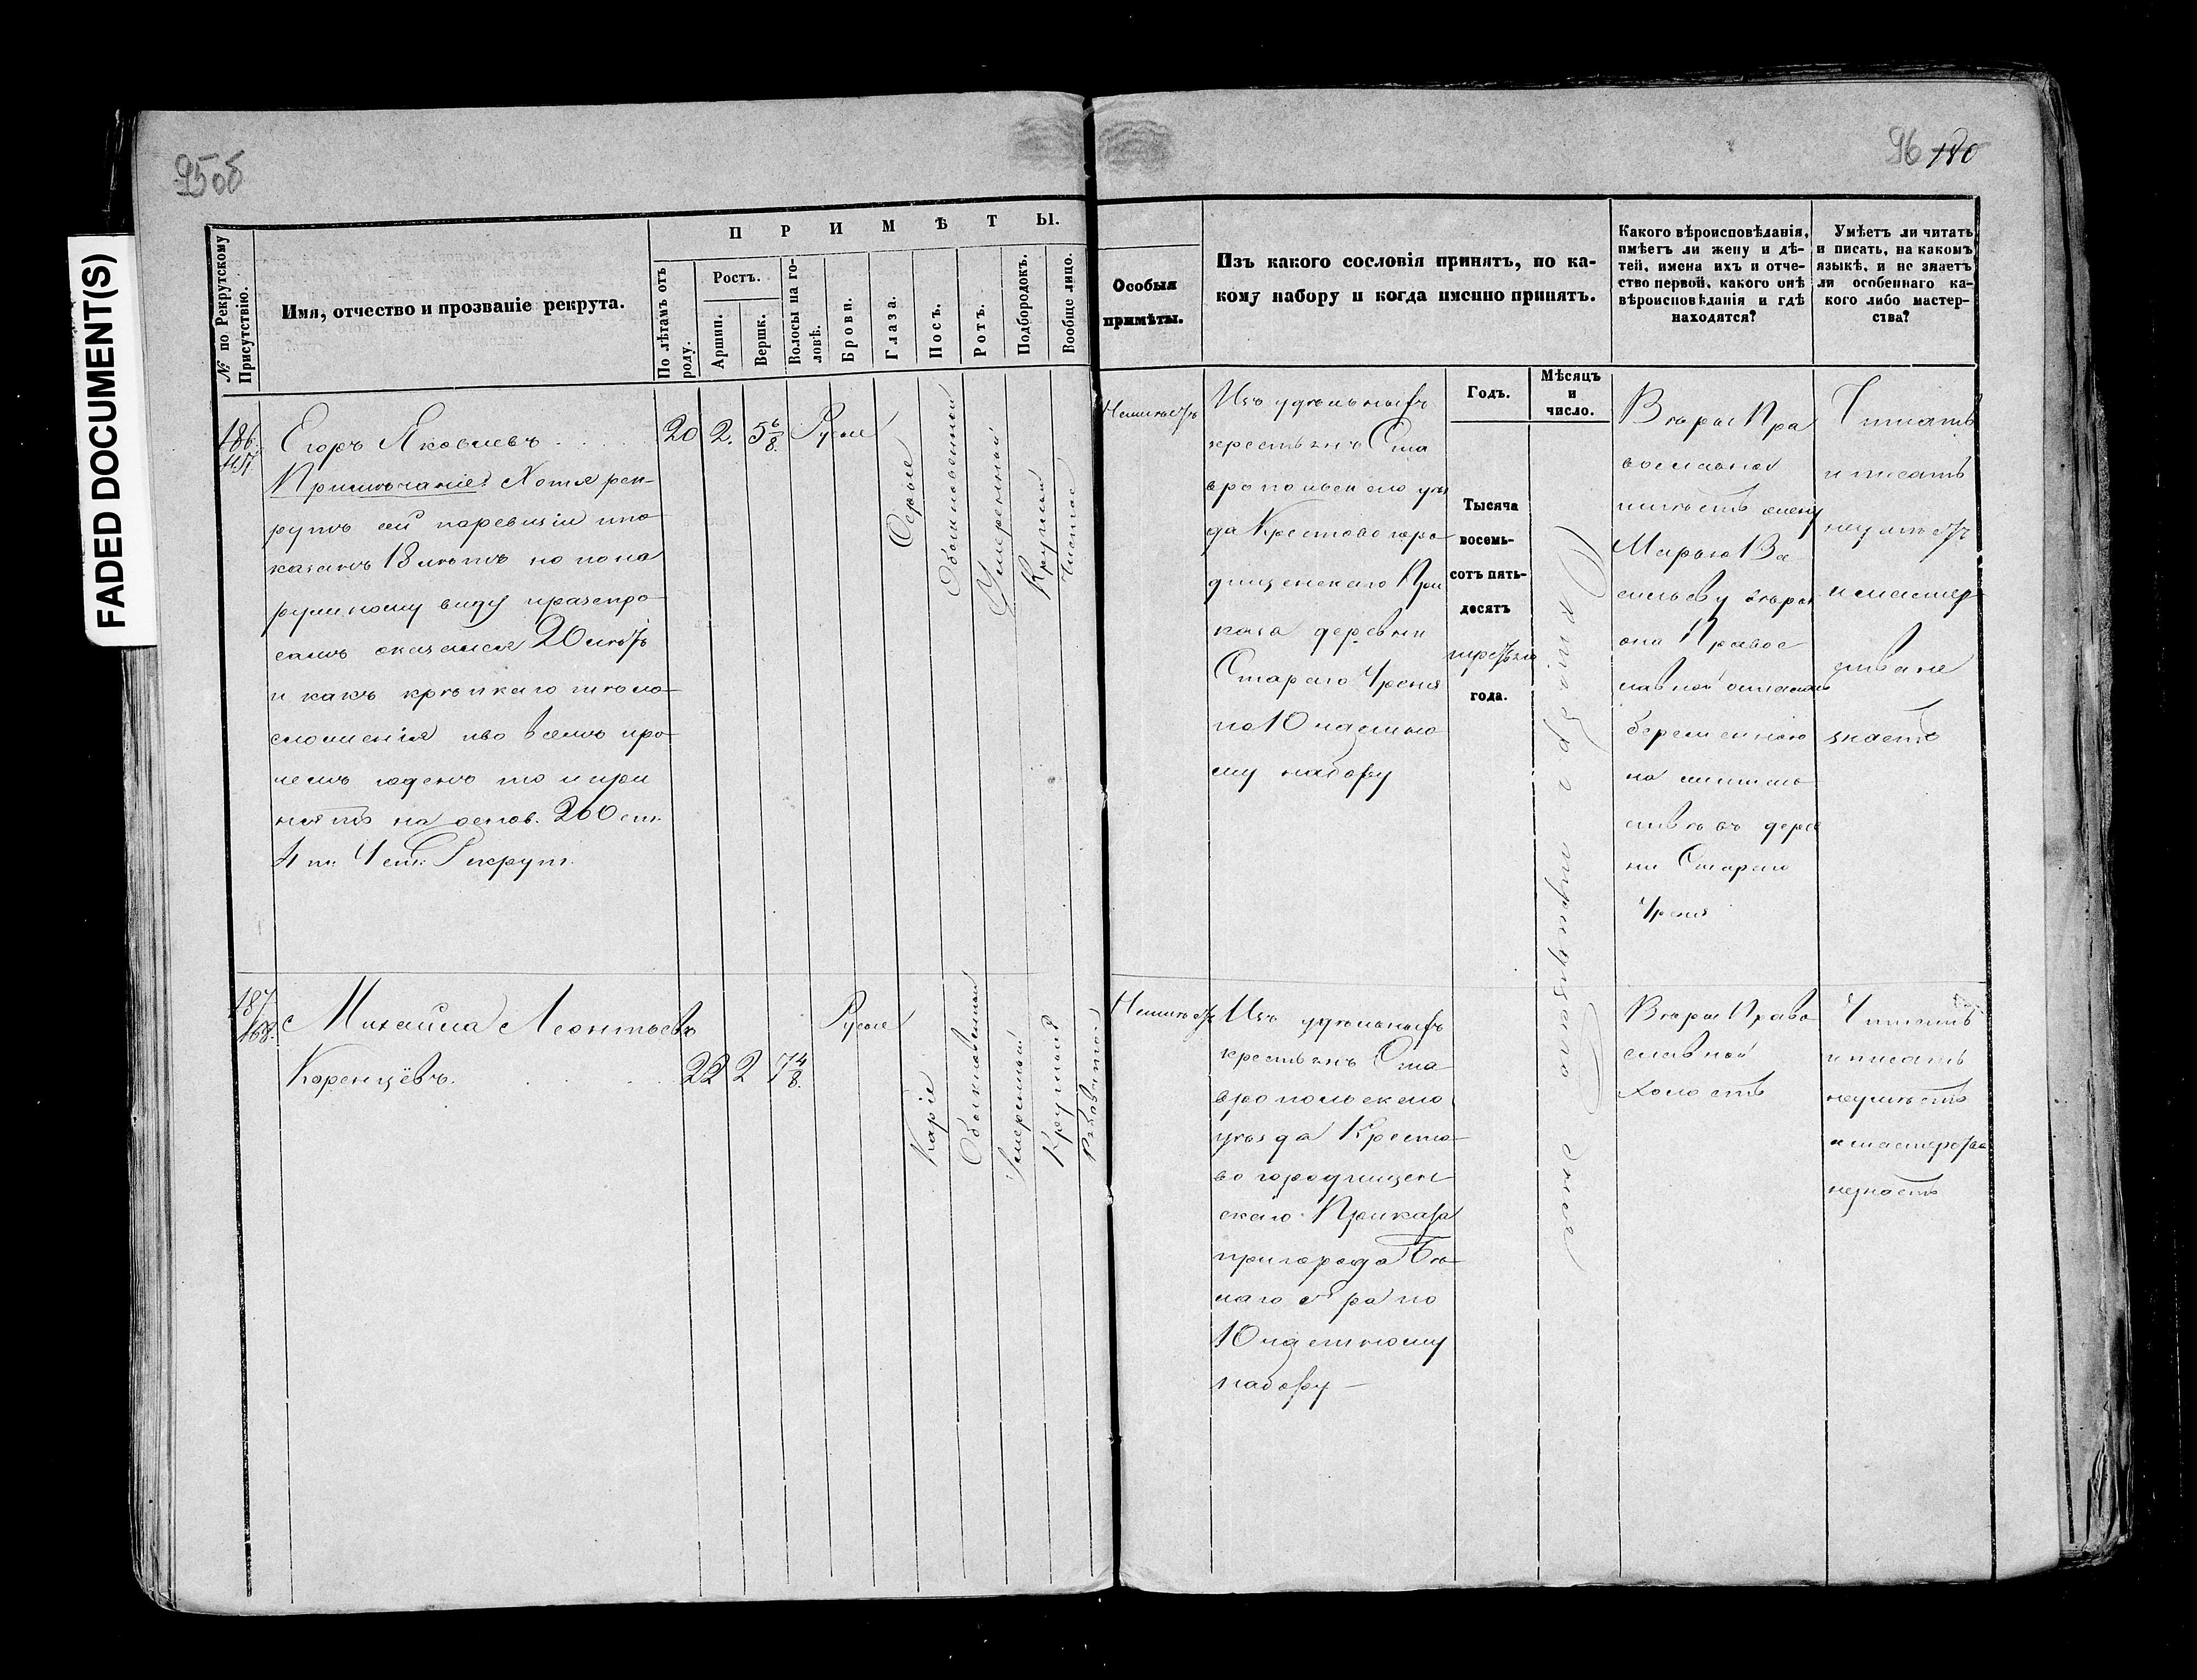 95об
96 180
FADED DOCUMENT(S)
№ по Рекрутскому Присутствію.
Имя, отчество и прозваніе рекрута.
ПРИМѢТЫ.
По лѣтамъ отъ роду.
Ростъ.
Аршин.
Вершк.
Волосы на головѣ.
Брови.
Глаза.
Носъ.
Ротъ.
Подбородокъ.
Вообще лицо.
Особыя
примѣты.
Изъ какого сословія принятъ, по ка-
кому набору и когда именно принятъ.
Годъ.
Мѣсяцъ
и
число.
Какого вѣроисповѣданія,
имѣетъ ли жену и дѣ-
тей, имена ихъ и отче-
ство первой, какого онѣ
вѣроисповѣданія и гдѣ
находятся?
Умѣетъ ли читать
и писать, на какомъ
языкѣ, и не знаетъ
ли особеннаго ка-
кого либо мастер-
ства?
186.
Егоръ Яковлевъ
Примѣчаніе: Хотя рек-
рутъ сей по ревизіи по
казанъ 18 лѣтъ но по на
ружному виду и разспро
самъ оказался 20 лѣтъ
и какъ крѣпкаго тѣло-
сложенія и во всемъ про
чемъ годенъ то и при
нятъ на основ. 200 ст.
4 т. Уст: Рекрут.
20 2. 5 6/8. Русые
Сѣрые
Обыкновенной
Умеренный
Круглый
Чистое
Неимѣетъ
Изъ удѣльныхъ
крестьянъ Ста
вропольскаго уѣз
да Крестовогоро
дищенскаго При
каза деревни
Стараго Уреня
по 10 частно
му набору
Тысяча
восемь-
сотъ пять-
десятъ
третьяго
года.
Октября тридцатаго дня
Вѣры Пра
вославной
имѣетъ жену
Марью Ва
сильеву вѣры
она Правос
лавной осталась
беременною
на житель
ствѣ въ дерев
ни Стараго
Уреня
Читать
и писать
неумѣетъ
и мастер
ства не
знаетъ
187
168.
Михайла Леонтьевъ
Коренцёвъ.
22 2 7 4/8.
Русые
Каріе
Обыкновенный
Умеренный
Круглый
Рябоватое
Неимѣетъ
Изъ удѣльныхъ
крестьянъ Ста
вропольскаго
уѣзда Кресто-
во городищен
скаго Приказа
пригорода Бѣ-
лаго Яра по
10 частному
набору
Вѣры Право
славной
холостъ
Читать
и писать
неумѣетъ
и мастерства
незнаетъ